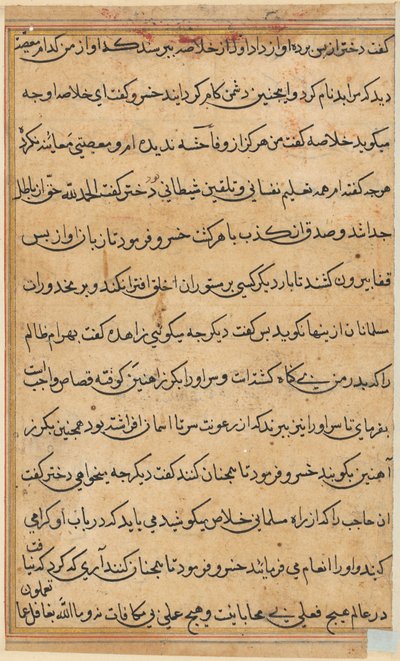 گفت دختر از پس پرده آواز داد او از خلاصه بپرسند که او از من کدام معصیّة
دید که مرا بدنام کرد و اینچنین دشمن کام کردانید خسرو گفت ای خلاصه او چه
میکوید خلاصه گفت من هرکز از و فاحشه ندیده ام و معصیتی معاینه نکرده
هرچه گفته ام همه تعلیم نفسانی و تلقین شیطانی بود دختر گفت الحمد لله حق از باطل
جدا شد و صدق از کذب باهر گشت خسرو فرمود تا زبان او از پس
قفا بیرون کشند تا بار دیگر کسی بر مستوران خلق افترا نکند و بر مخدورات
مسلمانان از ینها نکوید پس گفت دیگر چه میکوئی زاهده گفت بهرام ظالم
را که پدر من بی کناه کشته است و سر او را بکرز آهنین کوفته قصاص واجب است
بفرمای تا سر او را نیز ببرند که از رعونت سر تا آسمان افراشته بود همچنین بکرز
آهنین بکوبند خسرو فرمود تا همچنان کنند گفت دیگر چه میخواهی دختر گفت
آن حاجب را که از راه مسلمانی خلاص میکوشید می باید که در باب او کرامی
کنید و او را انعام می فرمائید خسرو فرمود تا همچنان کنند آری که کرد که نیافت
در عالم هیچ فعلی بی محابا نیست و هیچ عملی بی مکافات نه و ما الله بغافل عما تعملون